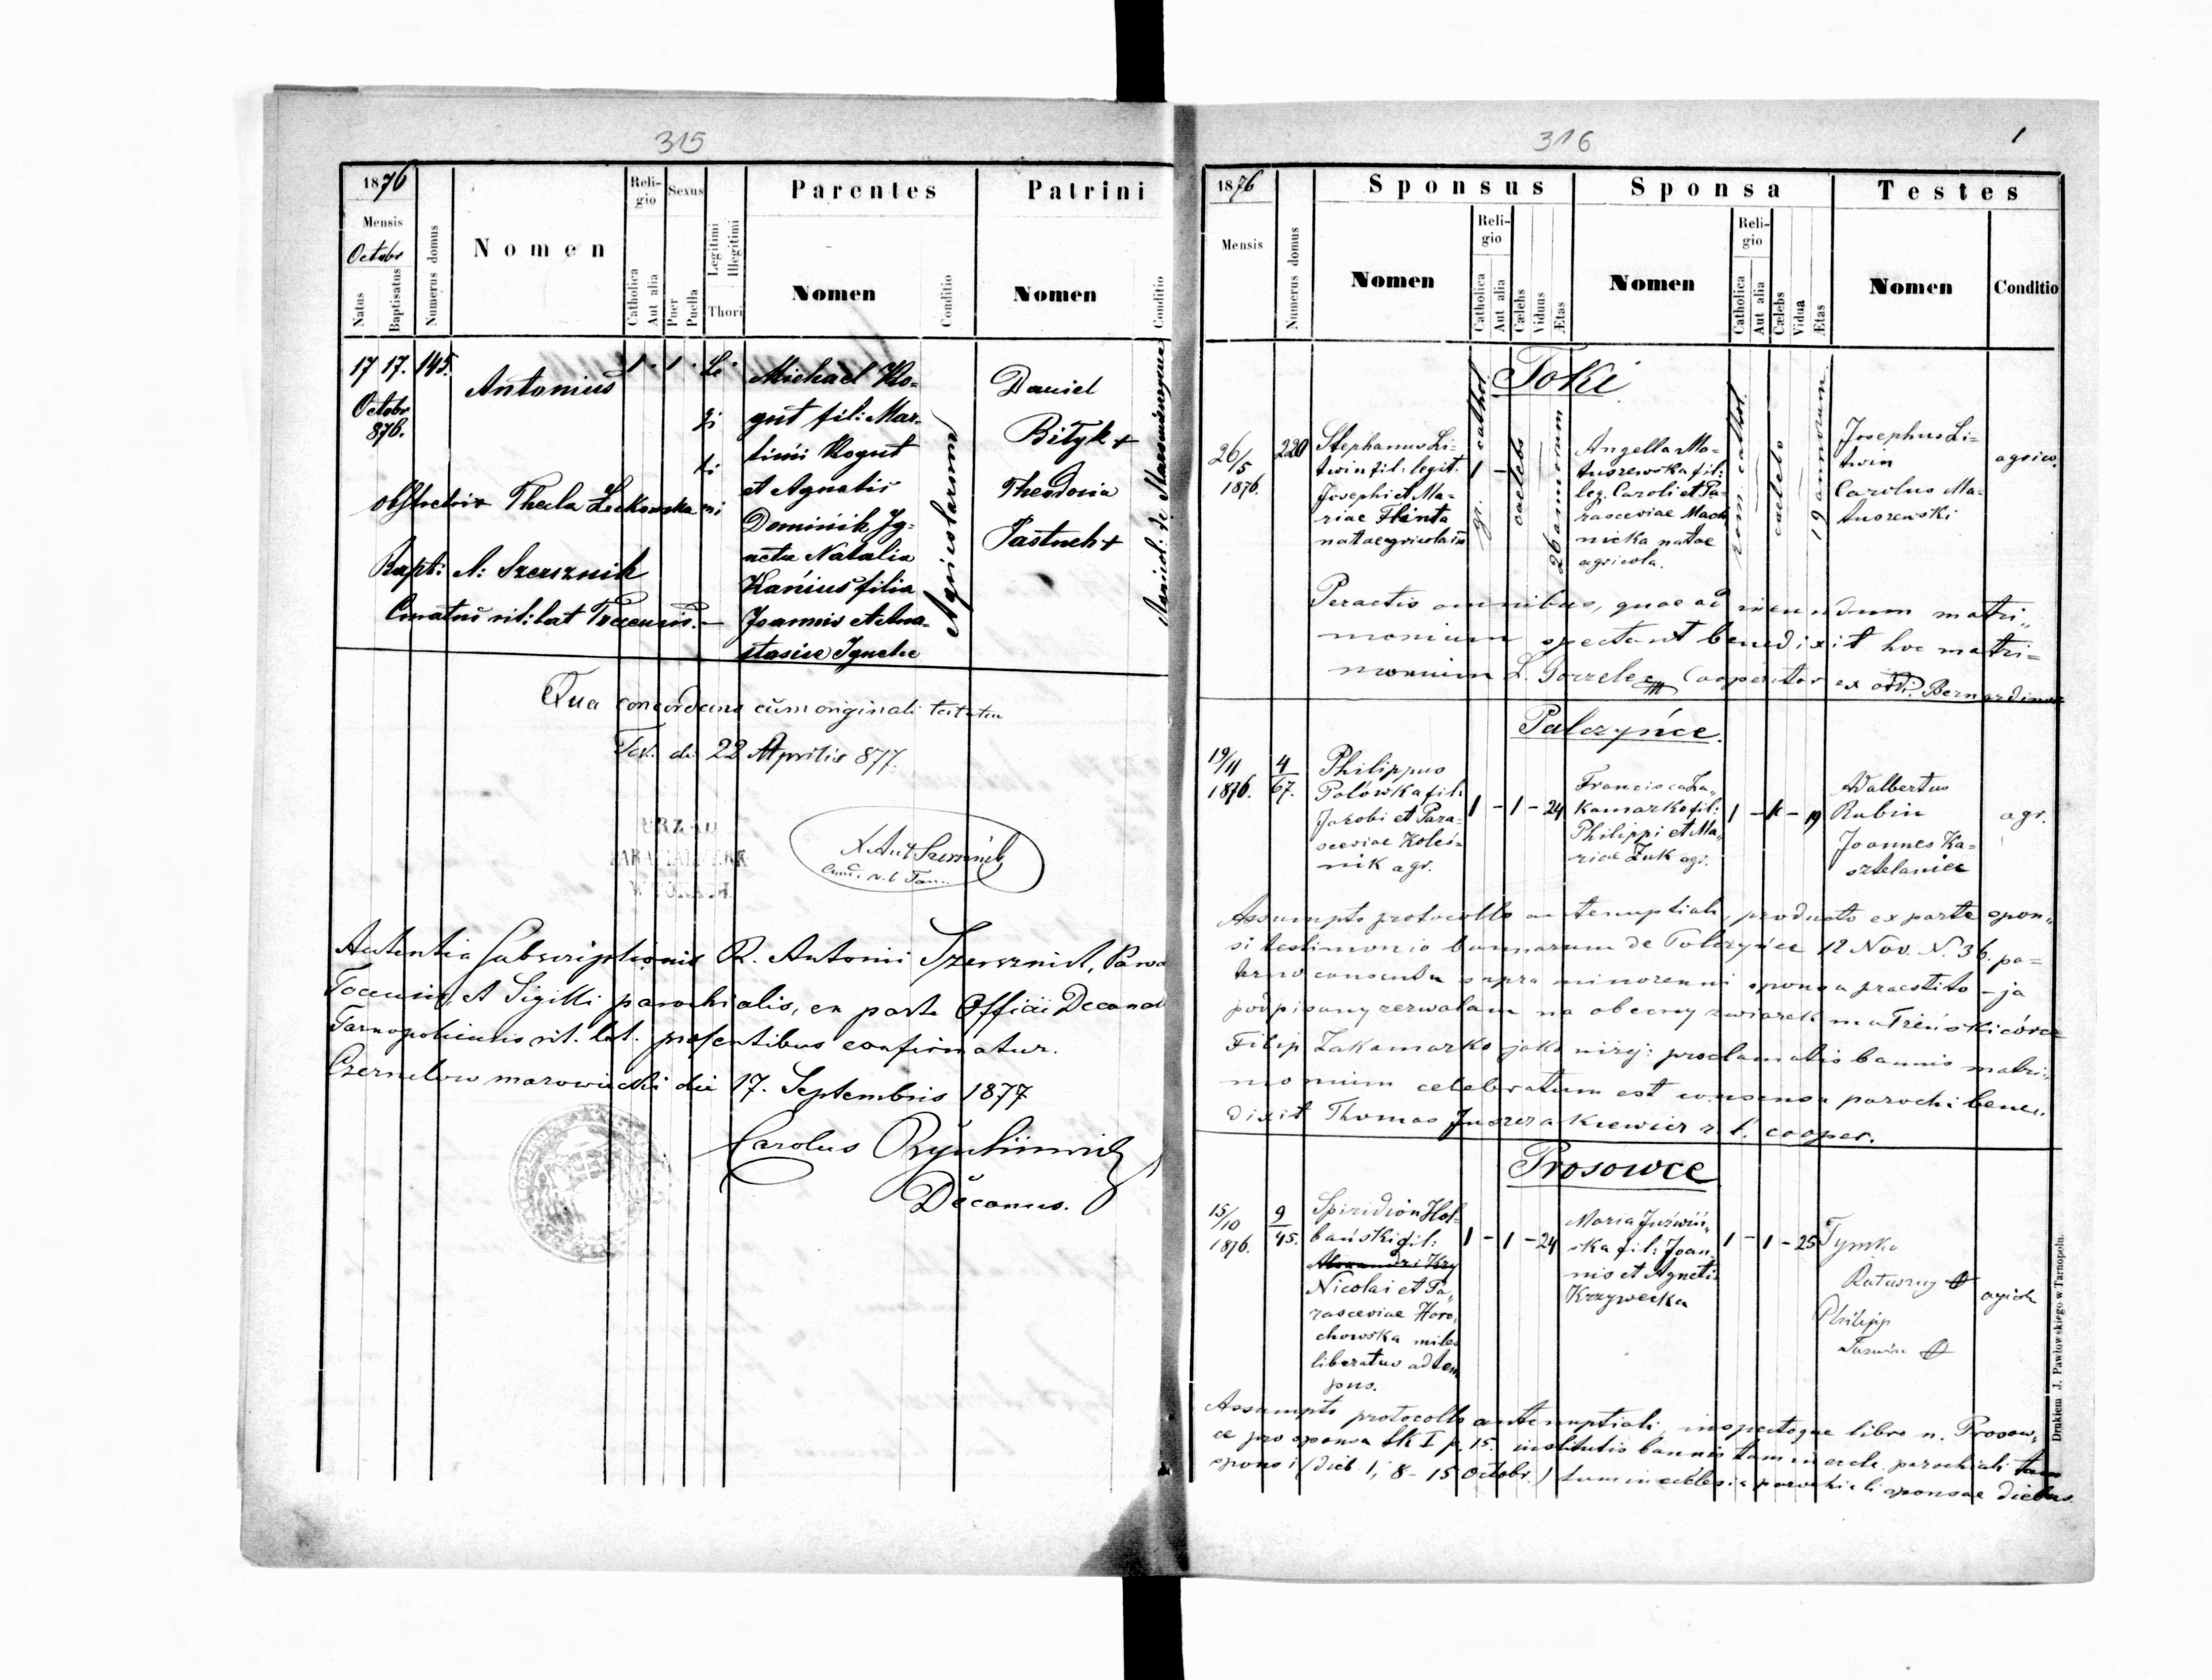 315
1876
Mensis
Octobr
Natus
Baptisatus
Numerus domus
Nomen
Religio
Catholica
Aut alia
Sexus
Puer
Puella
Legitimi
Illegitimi
Thori
Parentes
Nomen
Conditio
Patrini
Nomen
Conditio
17 17. 145.
Octobr
876.
Antonius
1. 1.
Le
gi
ti
mi
Michael Ko-
gut fil: Mar-
tini Kogut
et Agnetis
Dominik
Natalia
Kanius filia
Joannis et Ana-
stasiae
Agricolarum
Daniel
Bityk +
Theodosia
Pastuch +
obstetrix Thecla
Bapt: A: Szersznik
Curatus rit: lat
Qua concordans cum originali testatur
Tok. die 22 Aprilis 877.
URZĄD
PARAFIALNY
W TOKACH
X Ant Szersznik
Autentia Subscriptionis R. Antoni Szersznik,
Tocensis, et Sigilli parochialis, ex parte Officii Decanal
Tarnopoliensis rit. lat. presentibus confirmatur.
Czernelow mazowiecki die 17. Septembris 1877
Carolus
Decanus.
316
1
1876
Mensis
Numerus domus
Sponsus
Nomen
Religio
Catholica
Aut alia
Cælebs
Viduus
Ætas
Sponsa
Nomen
Religio
Catholica
Aut alia
Cælebs
Vidua
Ætas
Testes
Nomen
Conditio
Toki
26/5
1876.
220
Stephanus Li-
twin fil: legit.
Josephi et Ma-
riae Flinta
natae agricola
gr. cathol.
1 -
caelebs
26 annorum
Angella Ma-
tuszewska fil:
leg. Caroli et Pa-
rasceviae Mach
nicka natae
agricola.
rom. cathol.
caelebs
19 annorum
Josephus Li=
twin
Carolus Ma-
tuszewski
agrico.
Peractis omnibus, quae ad ineundum matri„
monium spectant benedixit hoc matri=
monium L. Gorzelec Cooperator ex ord. Bernardinor
Palczyńce.
19/11
1876.
4
67.
Philippus
Polówka fil:
Jacobi et Para-
sceviae Koleś-
nik agr.
1 - 1 - 24
Francisca Za„
kamarko fil:
Philippi et Ma„
riae Żuk agr.
1 - 1 - 19
Adalbertus
Rubin
Joannes Ka-
sztelaniec
agr.
Assumpto protocollo antenuptiali, producto ex parte spon„
si testimonio bannarum de Palczyńce 12 Nov. N. 36. pa=
terno consensu supra minorenni sponsa praestito - ja
podpisany zezwalam na obecny związek małżeński córce
Filip Zakamarko jako niżej: proclamatis bannis matri„
monium celebratum est consensu parochi bene„
dixit Thomas Juszczakiewicz r. l. cooper.
Prosowce
15/10
1876.
9
45.
Spiridion Hol-
bański fil:
Nicolai et Pa„
rasceviae Horo„
chowska miles
liberatus ad tem
pus.
1 - 1 - 24
Maria Juźwiń„
ska fil: Joan„
nis et Agnetis
Krzywecka
1 - 1 - 25
Tymko
Ratuszny
Philipp
Assumpto protocollo antenuptiali, inspectoque libro n. Prosow„
ce pro sponsa tk I p. 15. institutis bannis tam in eccle. parochiali
sponsi (dieb. 1, 8 - 15 Octobr.) tum in ecclesia parochiali sponsae diebus
Drukiem J. Pawłowskiego w Tarnopolu.